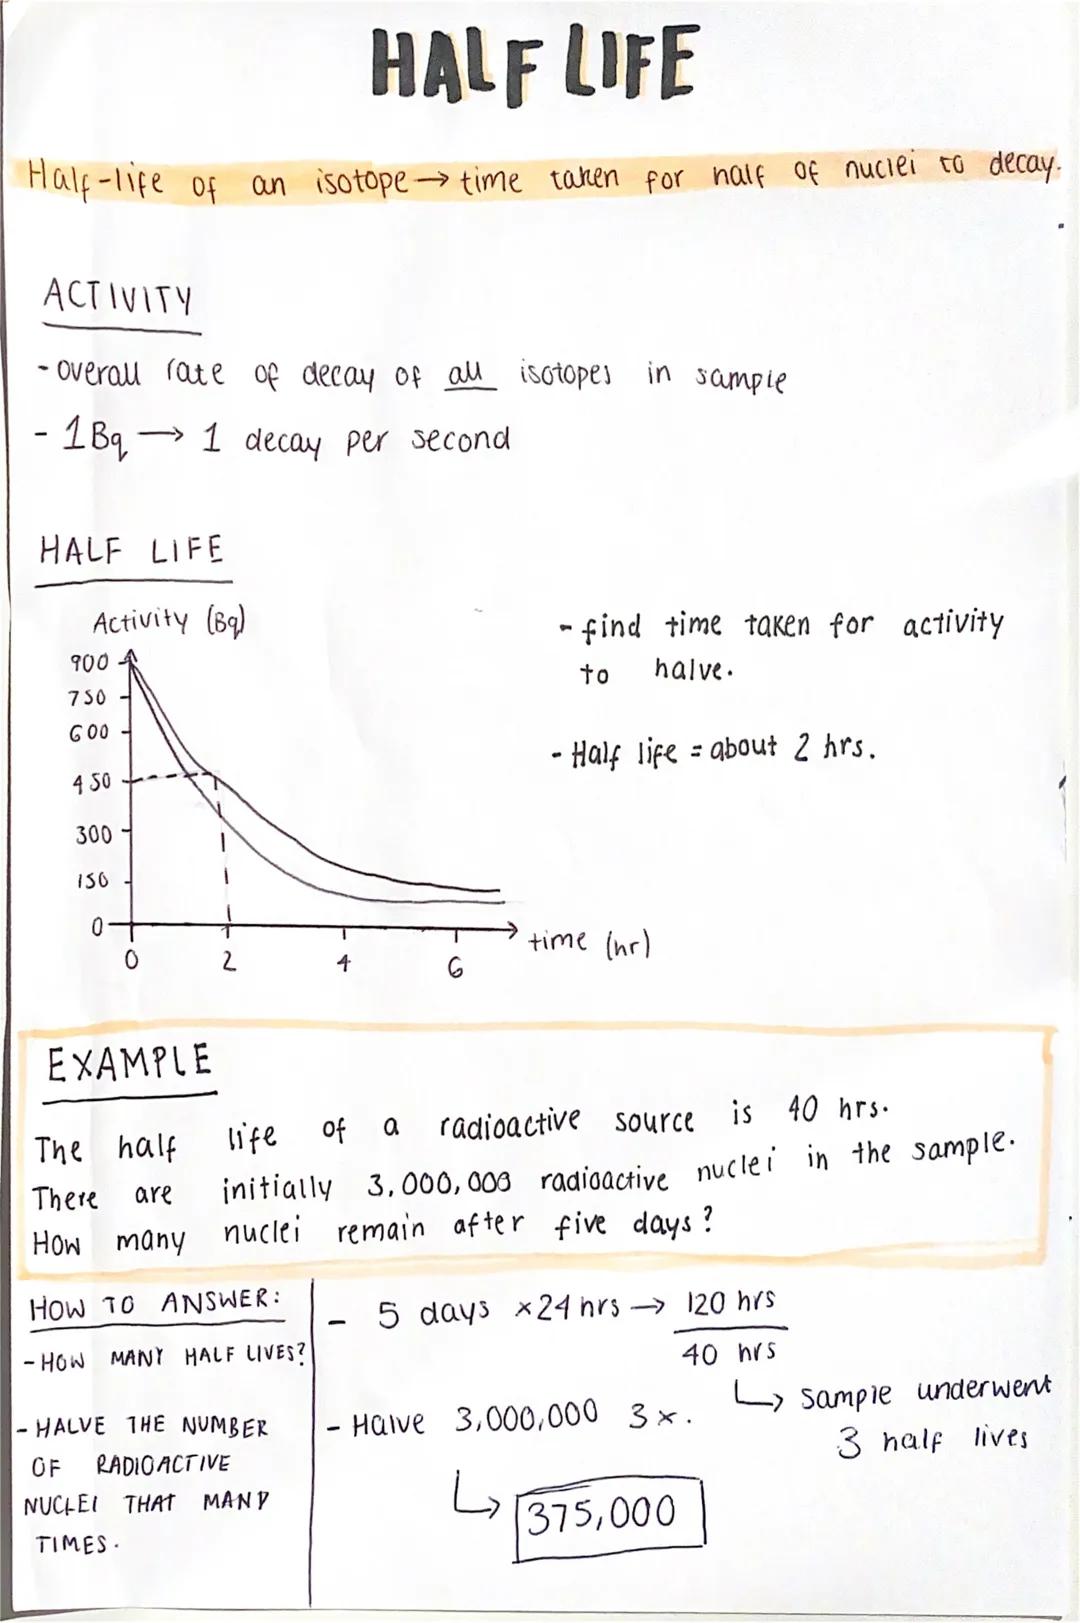 HALF LIFE
Half-life of an isotope → time taken for half of nuclei to decay.
ACTIVITY
- overall rate of decay of all isotopes in sample
- 1Bq → 1 decay per second
HALF LIFE
Activity (Bq)
900
750
600
450
300
150
0
0 2 4 6
time (hr)
- find time taken for activity
to halve.
- Half life = about 2 hrs.
EXAMPLE
The half life of a radioactive source is 40 hrs.
There are initially 3,000,000 radioactive nuclei in the sample.
How many nuclei remain after five days?
HOW TO ANSWER:
- HOW MANY HALF LIVES?
- HALVE THE NUMBER
OF RADIOACTIVE
NUCLEI THAT MANY
TIMES.
- 5 days ×24 hrs → 120 hrs
40 hrs
↳ sample underwent
3 half lives
- Halve 3,000,000 3×.
↳ 375,000